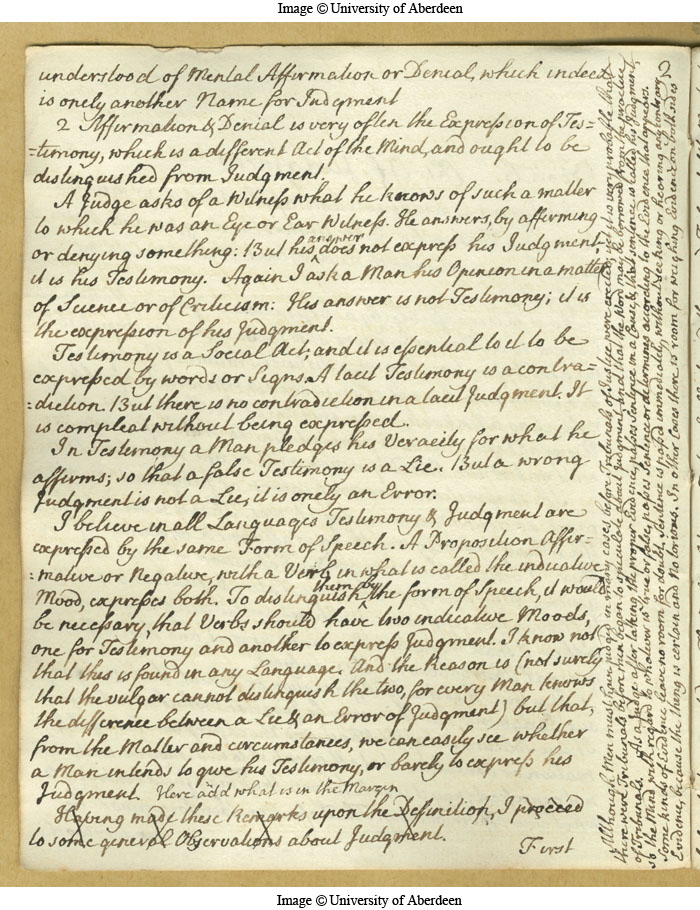 Image © University of Aberdeen
2
understood of Mental Affirmation or Denial, which indeed
is onely another Name for Judgment
2 Affirmation & Denial is very often the Expression of Tes=
=timony, which is a different Act of the Mind, and ought to be
distinguished from Judgment.
A Judge asks of a Witness what he knows of such a matter
to which he was an Eye or Ear Witness. He answers, by affirming
or denying something: But his answer does not express his Judgment
it is his Testimony. Again I ask a Man his Opinion in a matter
of Science or of Criticism: His answer is not Testimony; it is
the expression of his Judgment.
Testimony is a Social Act, and it is essential to it to be
expressed by words or Signs. A tacit Testimony is a contra=
=diction. But there is no contradiction in a tacit Judgment. It
is compleat without being expressed.
In Testemony a Man pledges his Veracity for what he
affirms; so that a false Testimony is a Lie. But a wrong
Judgment is not a Lie; it is onely an Error.
I believe in all Languages Testimony & Judgment are
expressed by the same Form of Speech. A Proposition Affir=
=mative or Negative, with a Verb in what is called the indicative
Mood, expresses both. To distinguish them by the form of Speech, it would
be necessary, that Verbs should have two indicative Moods,
one for Testimony and another to express Judgment. I know not
that this is found in any Language. And the Reason is (not surely
that the vulgar cannot distinguish the two, for every Man knows
the difference between a Lie & an Error of Judgment) but that,
from the Matter and circumstances, we can easily see whether
a Man intends to give his Testimony, or barely to express his
Judgment. Here add what is in the Margin
Having made these Remarks upon the Definition, I proceed
to some general Observations about Judgment.
First
Although Men must have judged in many cases before Tribunals of Justice were erected, yet it is very probable that
there were Tribunals before Men began to speculate about Judgment, and that the Word may be borrowed from the practice
of Tribunals. As a Judge after taking the proper Evidence, passes Sentence in a Cause, & that Sentence is called his Judgment;
so the Mind with regard to whatever is true or false, passes Sentence or determines according to the Evidence that appears.
Some kinds of Evidence leave no room for doubt. Sentence is passed immediatly, without seeking or hearing any contrary
Evidence, because the thing is certain and Notorious. In other Cases there is room for weighing Evidence on both sides
Image © University of Aberdeen